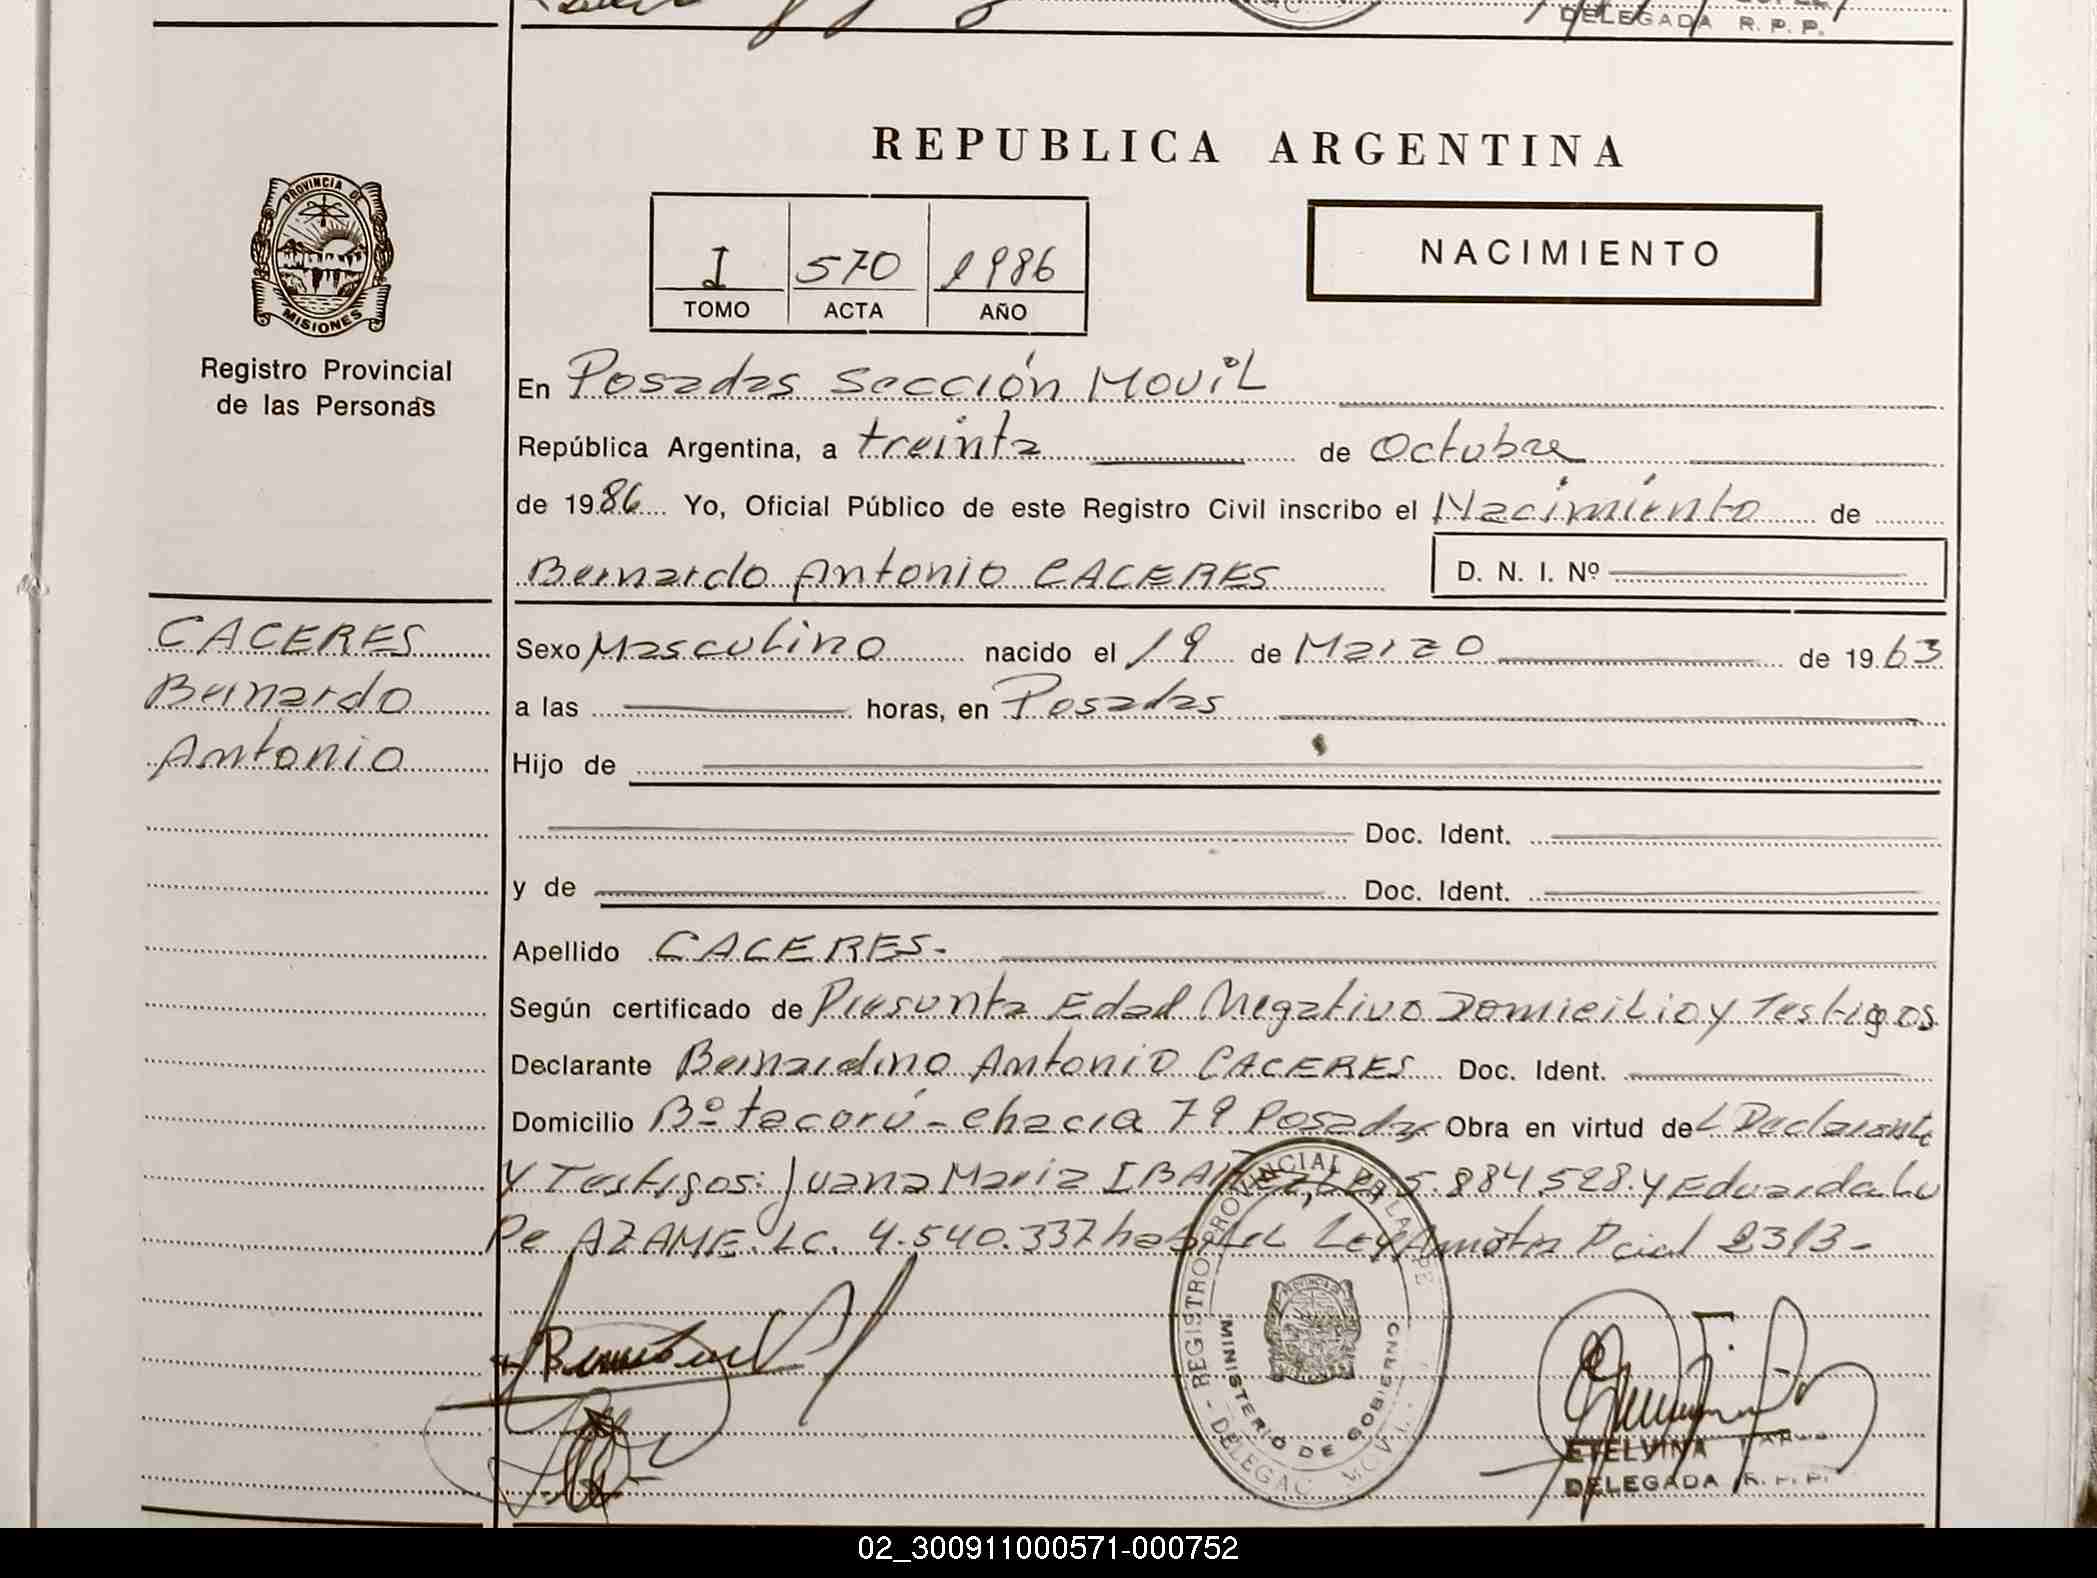 DELEGADA R. P. P.
REPUBLICA ARGENTINA
PROVINCIA DE
MISIONES
Registro Provincial
de las Personas
I 570 1986
TOMO ACTA AÑO
NACIMIENTO
En Posadas Sección Movil
República Argentina, a treinta de Octubre
de 1986 Yo, Oficial Público de este Registro Civil inscribo el Nacimiento de
Bernardo Antonio CACERES D. N. I. Nº
CACERES
Bernardo
Antonio
Sexo Masculino nacido el 19 de Marzo de 1963
a las horas, en Posadas
Hijo de
Doc. Ident.
y de Doc. Ident.
Apellido CACERES.
Según certificado de Presunta Edad Negativo Domicilio y Testigos
Declarante Bernardino Antonio CACERES Doc. Ident.
Domicilio Bº tacorú - chacra 79 Posadas Obra en virtud del Declarante
y Testigos: Juana Maria 5.884.528. y Eduarda Lu
Pe AZAME. LC. 4.540.337 Ley Pcial 2313-
REGISTRO PROVINCIAL DE LAS PE
MINISTERIO DE GOBIERNO
DELEGAC MOVIL
ETELVINA
DELEGADA R. P. P.
02_300911000571-000752